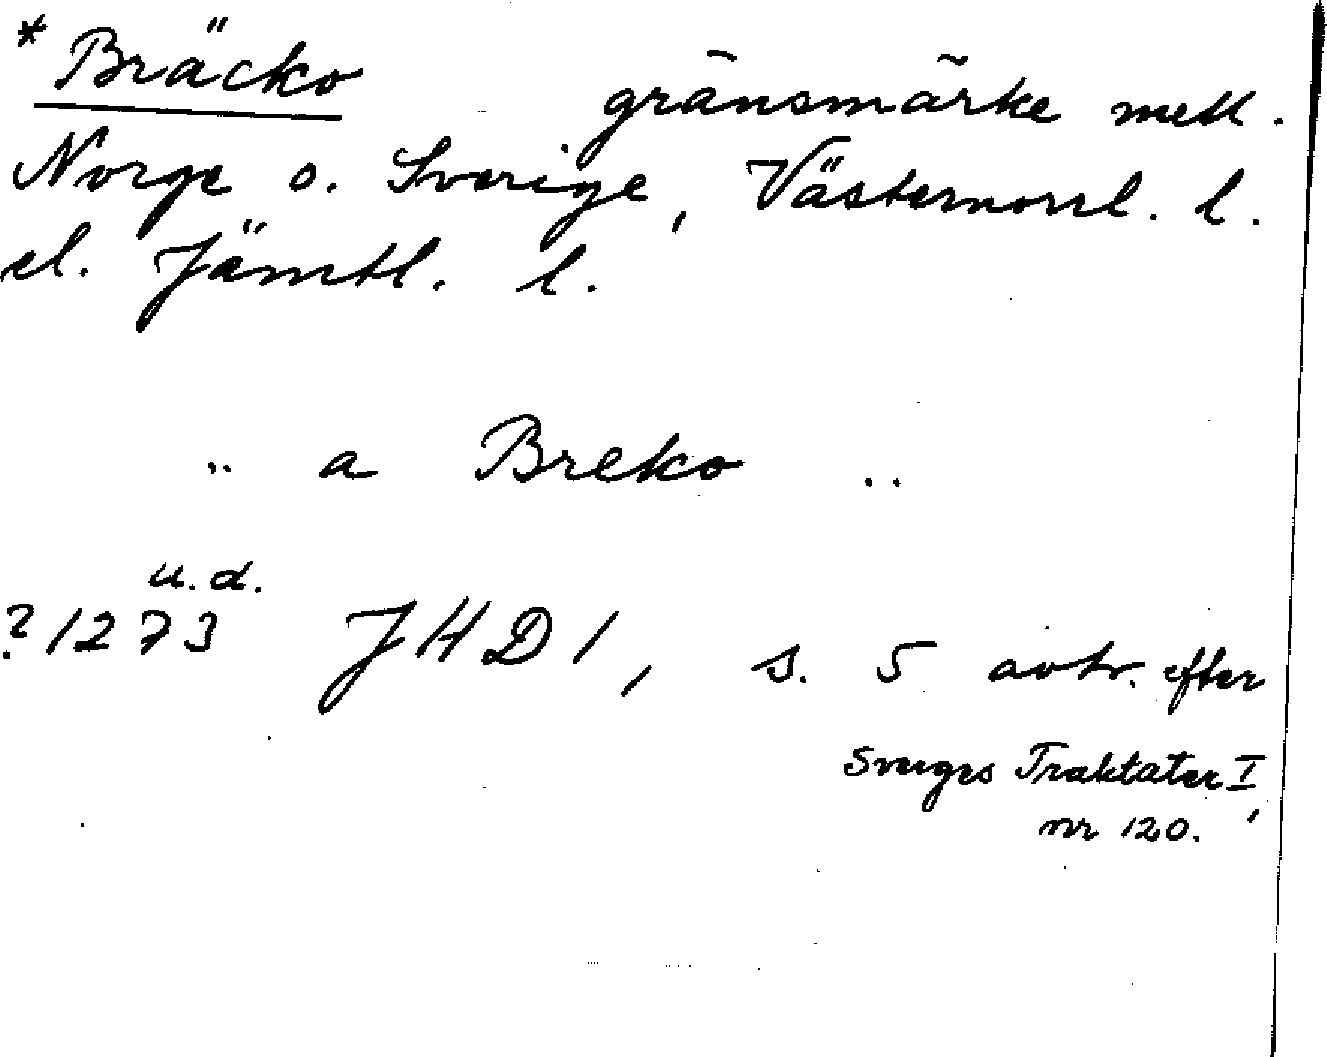 *Bräcko gränsmärke mell.
Norge o. Sverige, Västernorrl. l.
el. Jämtl. l.
.. a Breko ..
u.d.
?1273 JHD 1, s. 5 avtr. efter
Sverges Traktater I,
nr 120.